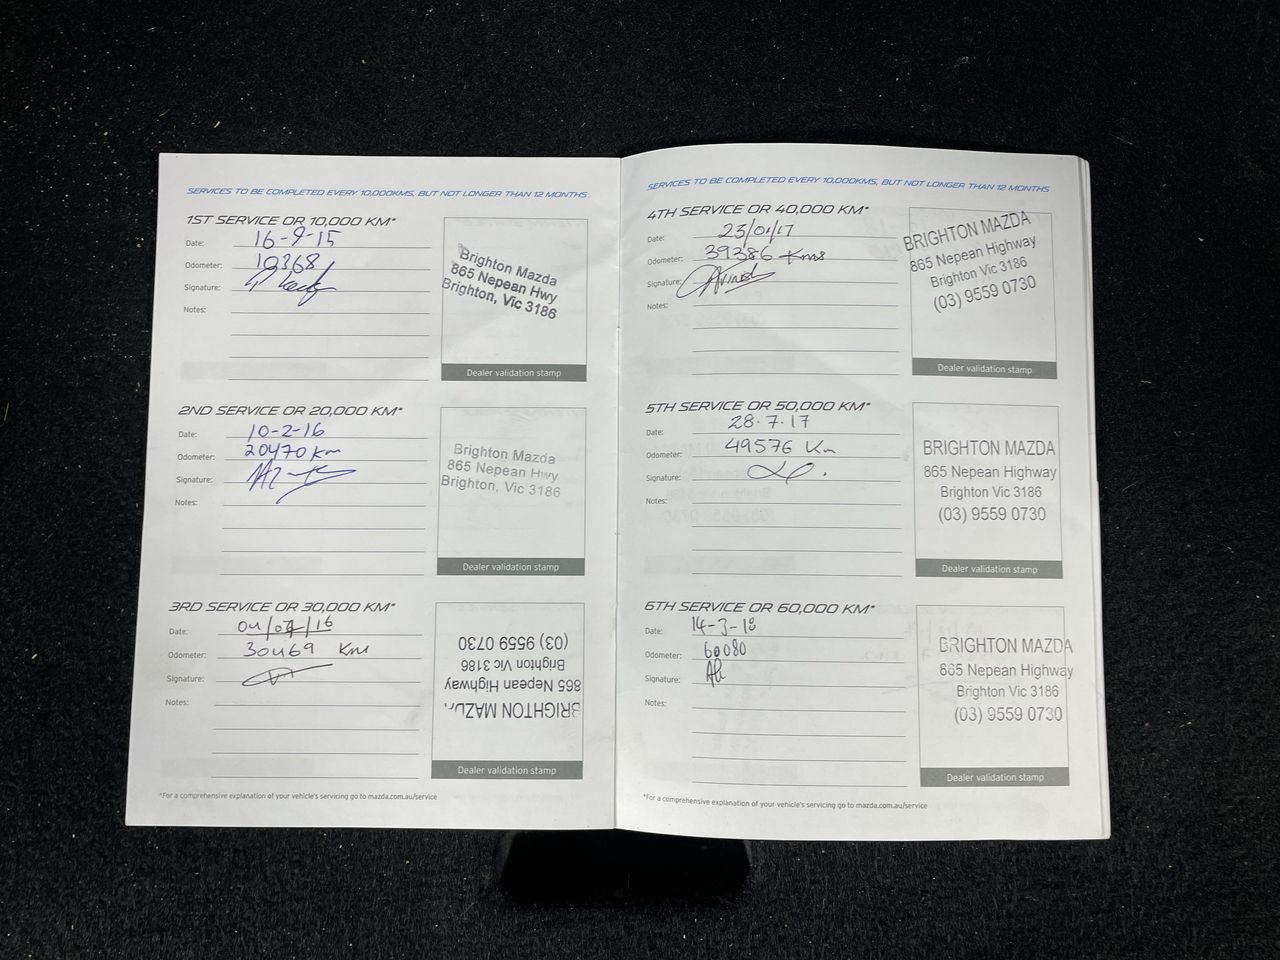 SERVICES TO BE COMPLETED EVERY 10,000KMS, BUT NOT LONGER THAN 12 MONTHS
1ST SERVICE OR 10,000 KM*
Date: 16-9-15
Odometer: 10368
Signature:
Notes:
Brighton Mazda
865 Nepean Hwy
Brighton, Vic 3186
Dealer validation stamp
2ND SERVICE OR 20,000 KM*
Date: 10-2-16
Odometer: 20470 km
Signature:
Notes:
Brighton Mazda
865 Nepean Hwy
Brighton, Vic 3186
Dealer validation stamp
3RD SERVICE OR 30,000 KM*
Date: 04/07/16
Odometer: 30469 Km
Signature:
Notes:
BRIGHTON MAZDA
865 Nepean Highway
Brighton Vic 3186
(03) 9559 0730
Dealer validation stamp
*For a comprehensive explanation of your vehicle's servicing go to mazda.com.au/service
SERVICES TO BE COMPLETED EVERY 10,000KMS, BUT NOT LONGER THAN 12 MONTHS
4TH SERVICE OR 40,000 KM*
Date: 23/01/17
Odometer: 39386 Kms
Signature:
Notes:
BRIGHTON MAZDA
865 Nepean Highway
Brighton Vic 3186
(03) 9559 0730
Dealer validation stamp
5TH SERVICE OR 50,000 KM*
Date: 28.7.17
Odometer: 49576 Km
Signature:
Notes:
BRIGHTON MAZDA
865 Nepean Highway
Brighton Vic 3186
(03) 9559 0730
Dealer validation stamp
6TH SERVICE OR 60,000 KM*
Date: 14-3-18
Odometer: 60080
Signature:
Notes:
BRIGHTON MAZDA
865 Nepean Highway
Brighton Vic 3186
(03) 9559 0730
Dealer validation stamp
*For a comprehensive explanation of your vehicle's servicing go to mazda.com.au/service